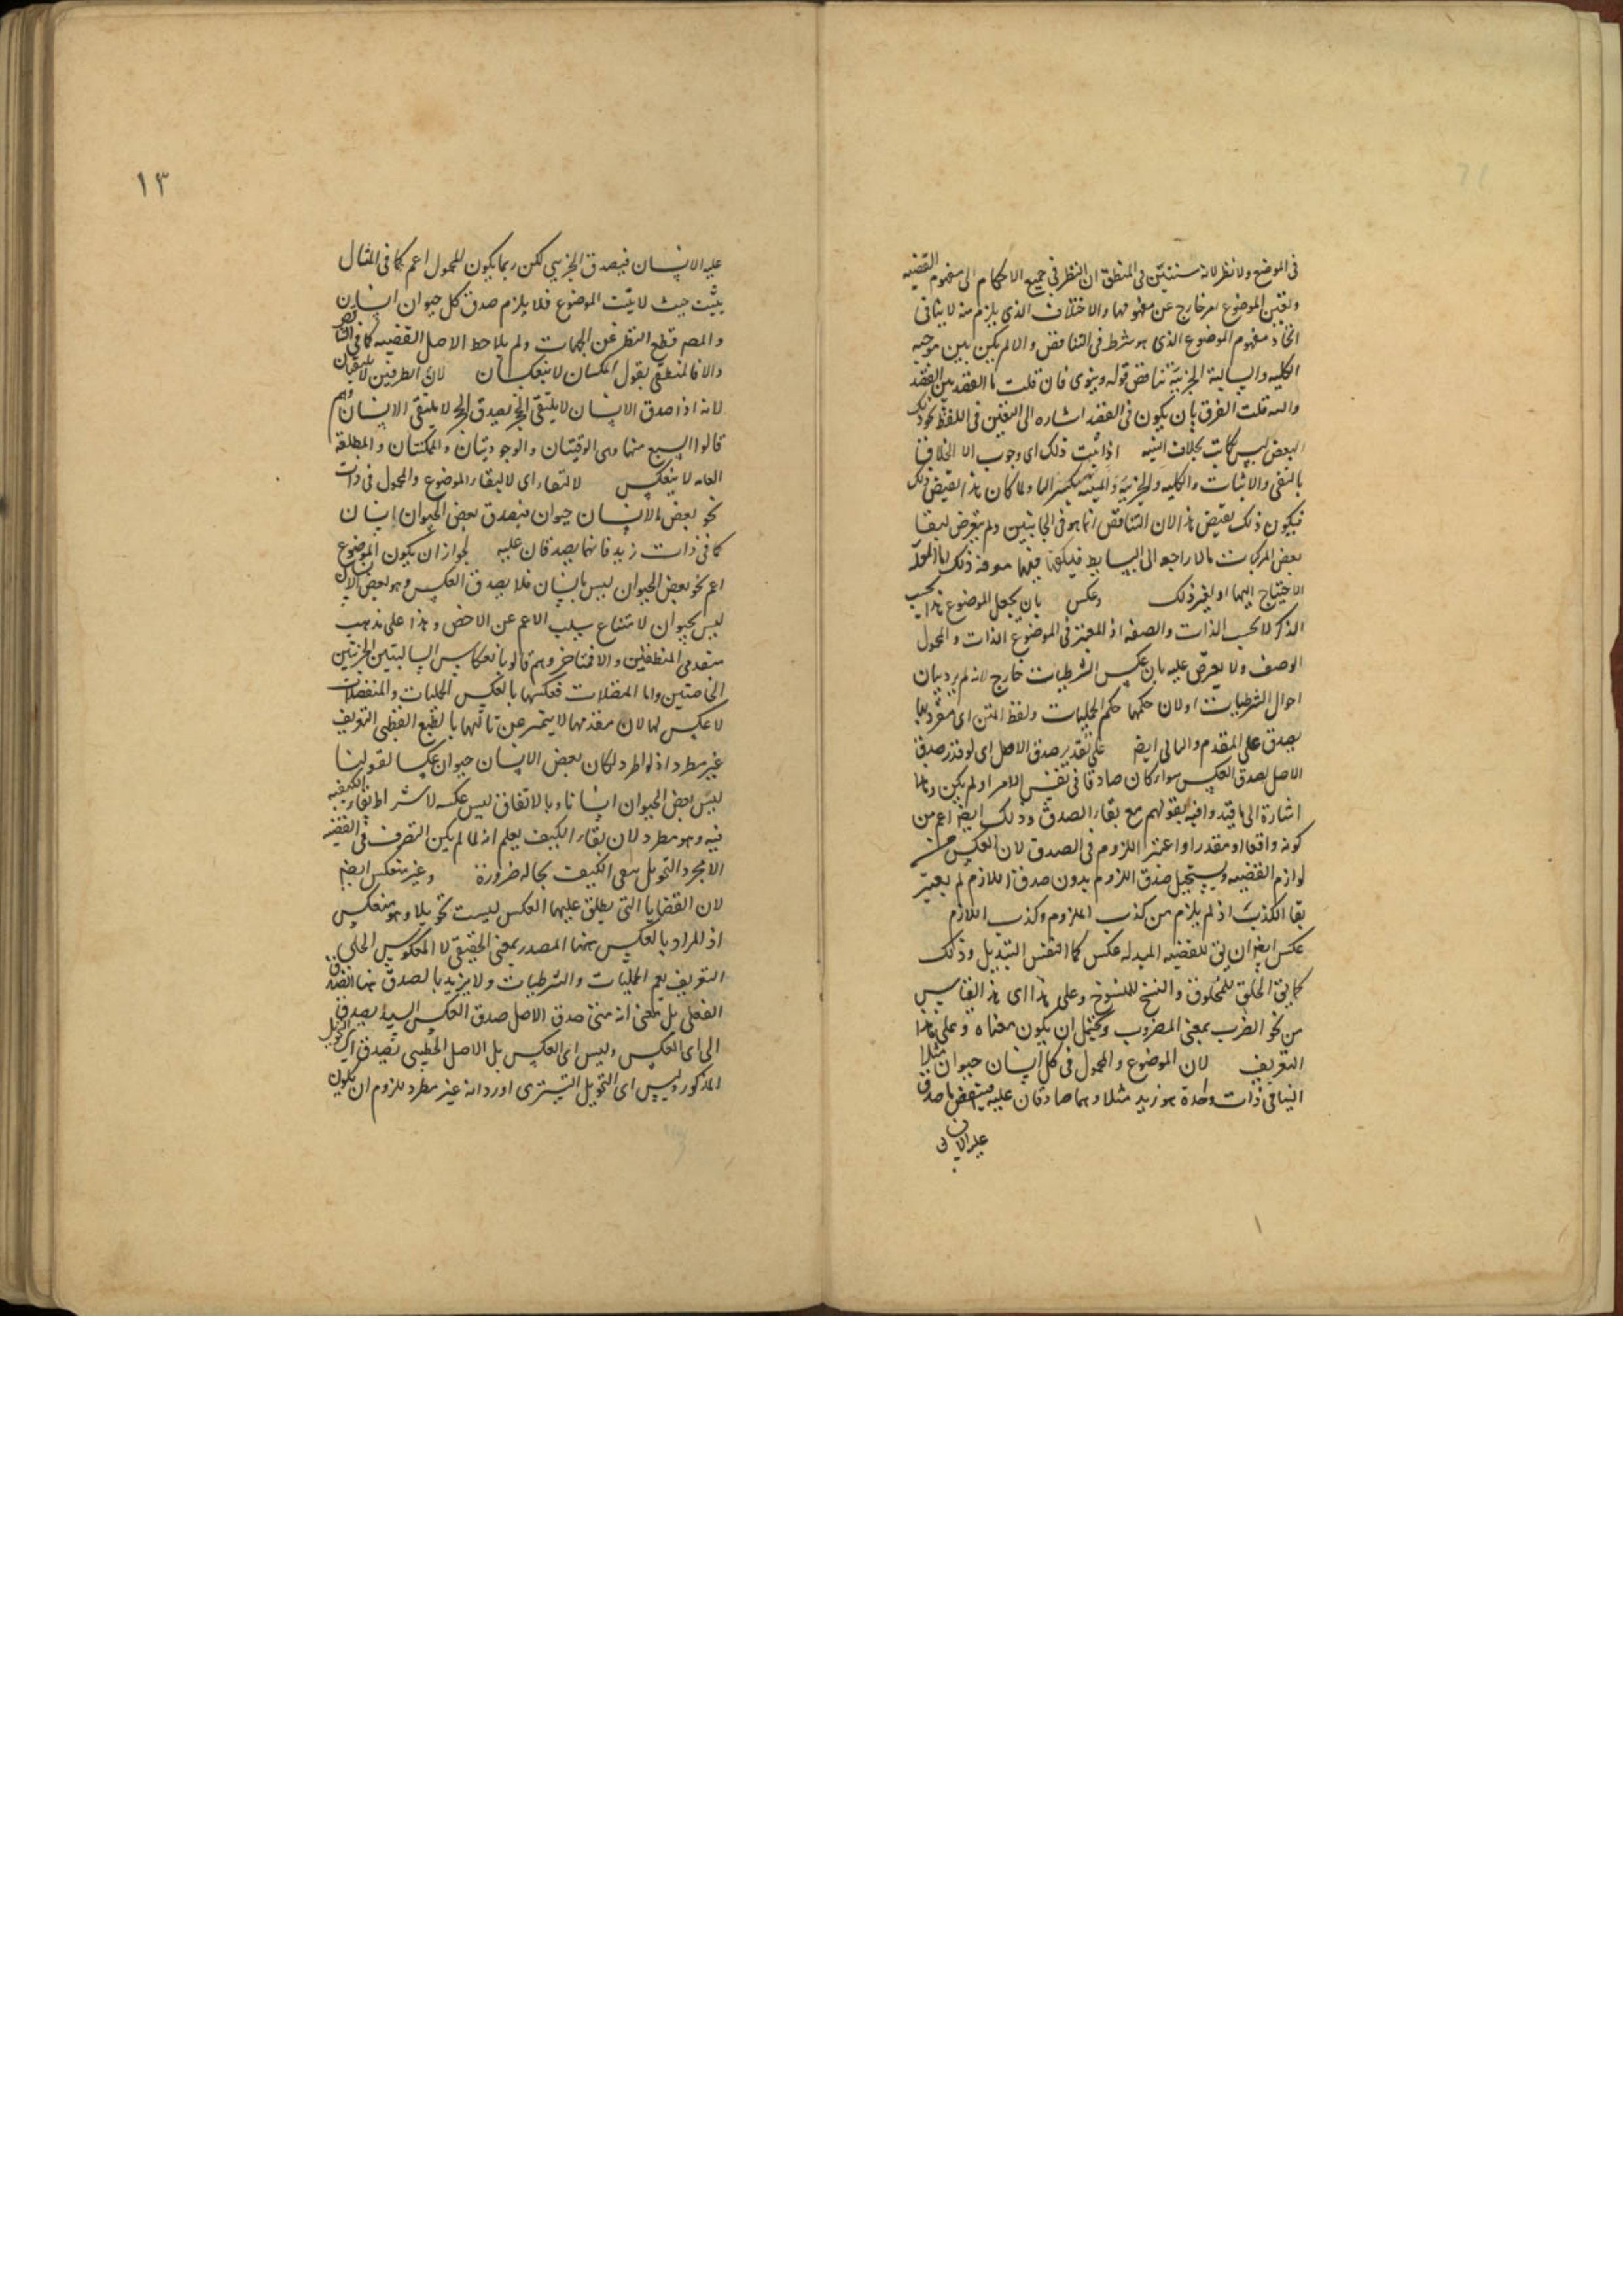 فى الموضع ولا نظر لانه سنتبين فى المنطق ان النظر فى جميع الاحكام الى مفهوم القضيه
وتعين الموضوع امر خارج عن مفهومها والاختلاف الذى يلزم منه لا ينافى
اتحاد مفهوم الموضوع الذى هو شرط فى التناقض والا لم يكن بين موجبه
الكليه والسالبة الجزئية تناقض قوله وينوى فان قلت ما الفقد بين الفقد
والنيه قلت الفرق بان يكون فى الفقد اشاره الى التعين فى اللفظ نحو ذلك
البعض ليس كاتب بخلاف النيه اذا ثبت ذلك اى وجوب الاختلاف
بالنفى والاثبات والكليه والجزئية ولما كان هذا نقيض ذلك
فيكون ذلك نقيض هذا لان التناقض انما هو فى الجانبين ولم يتعرض لنقا
بعض المركبات بالا راجعه الى البسايط فيكون فيها معرفة ذلك
الاحتياج اليها او لغير ذلك وعكس بان يجعل الموضوع هذا بحسب
الذكر لا بحسب الذات والصفه اذ المعتبر فى الموضوع الذات والمحمول
الوصف ولا يعترض عليه بان عكس الشرطيات خارج لانه لم يرد بيان
احوال الشرطيات او لان حكمها حكم الحمليات ولفظ المتن اى مفرديها
يصدق على المقدم والتالى ايضا على تقدير صدق الاصل اى لو قدر صدق
الاصل لصدق العكس سواء كان صادقا فى نفس الامر او لم يكن
اشارة الى ما قيد وافيه بقولهم مع بقاء الصدق وذلك ايضا اعم من
كونه واقعا او مقدرا واعتبر اللزوم فى الصدق لان العكس من
لوازم القضيه ويستحيل صدق الملزوم بدون صدق اللازم لم يعتبر
بقا الكذب اذ لم يلزم من كذب الملزوم وكذب اللازم
عكس ايضا ان يق للقضيه المبدله عكس كما التفسر التبديل وذلك
كما يق الخلق للمخلوق والنسخ للمنسوخ وعلى هذا اى هذ القياس
من نحو الضرب بمعنى المضروب ويحتمل ان يكون معناه وعلى هذا
التعريف لان الموضوع والمحمول فى كل انسان حيوان مثلا
التنافى ذات واحدة هو زيد مثلا وهما صادقان عليه فبعض ما صدق
عليه الان
١٣
عليه الانسان فيصدق الجزئى لكن ربما يكون المحمول اعم كما فى المثال
يثبت حيث لا يثبت الموضوع فلا يلزم صدق كل حيوان انسان
والمصم قطع النظر عن الجهات ولم يلاحظ الا اصل القضيه كما فى التناقض
والا فالمنطقى يقول لا ينعكسان لان الطرفين لا يلتقيان
لانه اذا صدق الانسان لا يلتقى الحجر يصدق الحجر لا يلتقى الانسان وهم
قالوا السبع منها وهى الوقتيتان والوجوديتان والممكنتان والمطلقة
العامه لا ينعكس لالتقاء اى لالتقاء الموضوع والمحمول فى ذات
نحو بعض الانسان حيوان فيصدق بعض الحيوان انسان
كما فى ذات زيد فانهما يصدقان عليه لجواز ان يكون الموضوع
اعم نحو بعض الحيوان ليس بانسان فلا يصدق العكس وهو بعض الانسان
ليس بحيوان لامتناع سلب الاعم عن الاخص وهذا على مذهب
متقدمى المنطقيين والا فتاخروهم قالوا بانعكاس السالبتين الجزئيتين
الخاصتين واما المتصلات فعكسها بالعكس الحمليات والمنفصلات
لا عكس لها لان مقدمها لا يتميز عن تاليها بالطبع القطبى التعريف
غير مطرد اذ لو اطرد لكان بعض الانسان حيوان عكسا لقولنا
ليس بعض الحيوان انسانا وبالاتفاق ليس عكسه لاشتراط بقاء الكيفيه
فيه وهو مطرد لان بقاء الكيف يعلم انه لما لم يكن التصرف فى القضيه
الا مجرد التحويل يبقى الكيف بحاله ضرورة وغير منعكس ايضا
لان القضايا التى يطلق عليها العكس ليست تحويلا وهو منعكس
اذ المراد بالعكس ههنا المصدر بمعنى الحقيقى لا المعكوس الحلى
التعريف يعم الحمليات والشرطيات ولا يزيد بالصدق هنا الصدق
الفعلى بل بمعنى انه متى صدق الاصل صدق العكس السيد يصدق
الى اى العكس وليس اى العكس بل الاصل الخطيبى يصدق اى التحويل
المذكور وليس اى التحويل التسترى اورد انه غير مطرد للزوم ان يكون